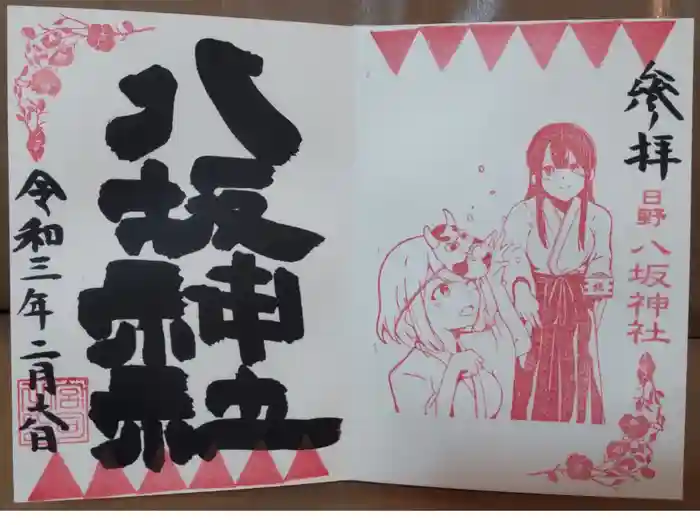 參拝
日野
八坂神社
八坂神社
令和三年二月六日